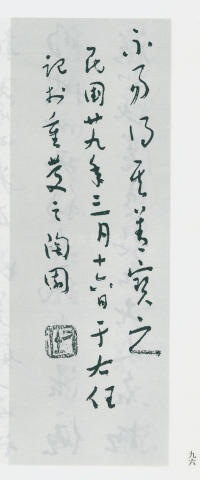 不易得其善寶之
民國廿九年三月十六日于右任
記於重慶之陶園
九六